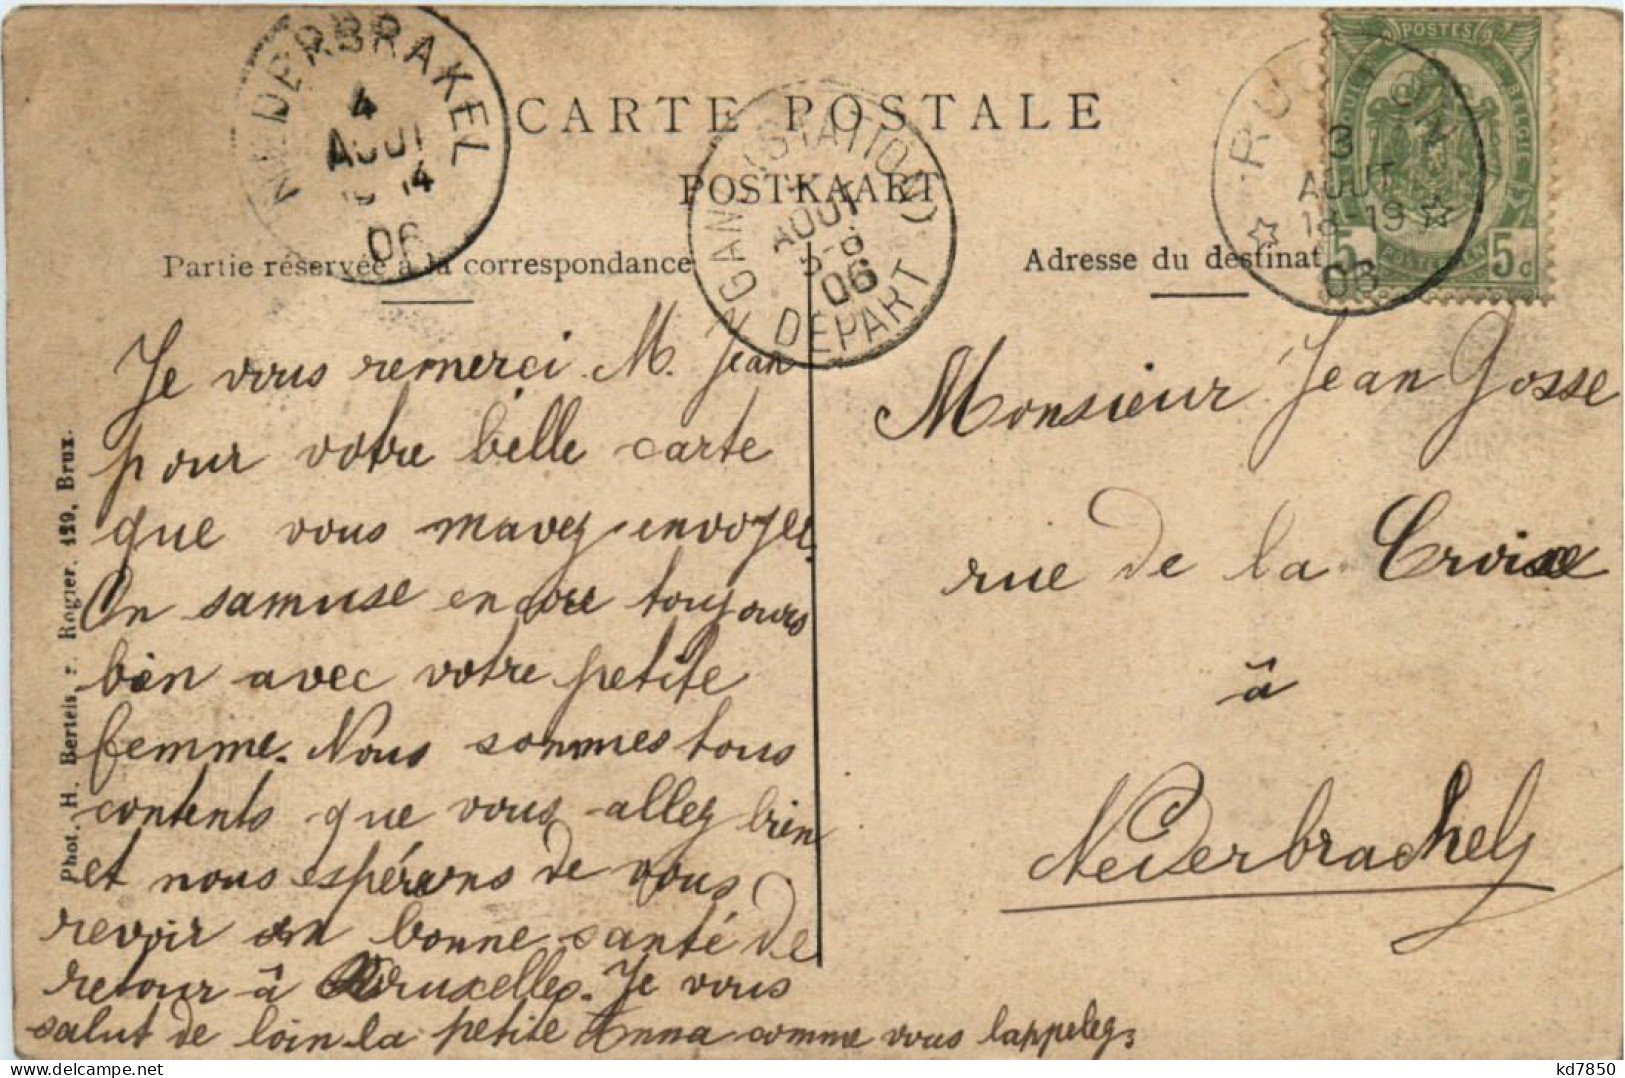 NEDERBRAKEL
4
AOUT
14
06
CARTE POSTALE
POSTKAART
(STATION)
AOUT
06
DEPART
3
AOUT
18-19
06
POSTES
BELGIE
5
5c
Partie réservée à la correspondance
Adresse du destinat
Je vous remerci M. Jean
pour votre belle carte
que vous mavez envoyée.
On samuse encore toujours
bien avec votre petite
femme. Nous sommes tous
contents que vous allez bien
et nous espérons de vous
revoir en bonne santé de
retour à Bruxelles. Je vous
salut de loin la petite Anna comme vous lappelez.
Monsieur Jean Gosse
rue de la Croix
à
Nederbrachel
Phot. H. Bertels, r. Rogier, 129, Brux.
kd7850